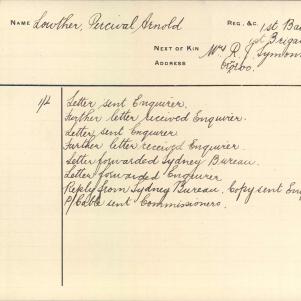 NAME Lowther, Percival Arnold
REG. &C. 1st Ba
1st Briga
NEXT OF KIN Mrs R. J. Symon
ADDRESS
1/4 Letter sent Enquirer.
Further letter received Enquirer.
Letter sent Enquirer
Further letter received Enquirer.
Letter forwarded Sydney Bureau.
Letter forwarded Enquirer
Reply from Sydney Bureau. Copy sent Enq
P/Cable sent Commissioners.